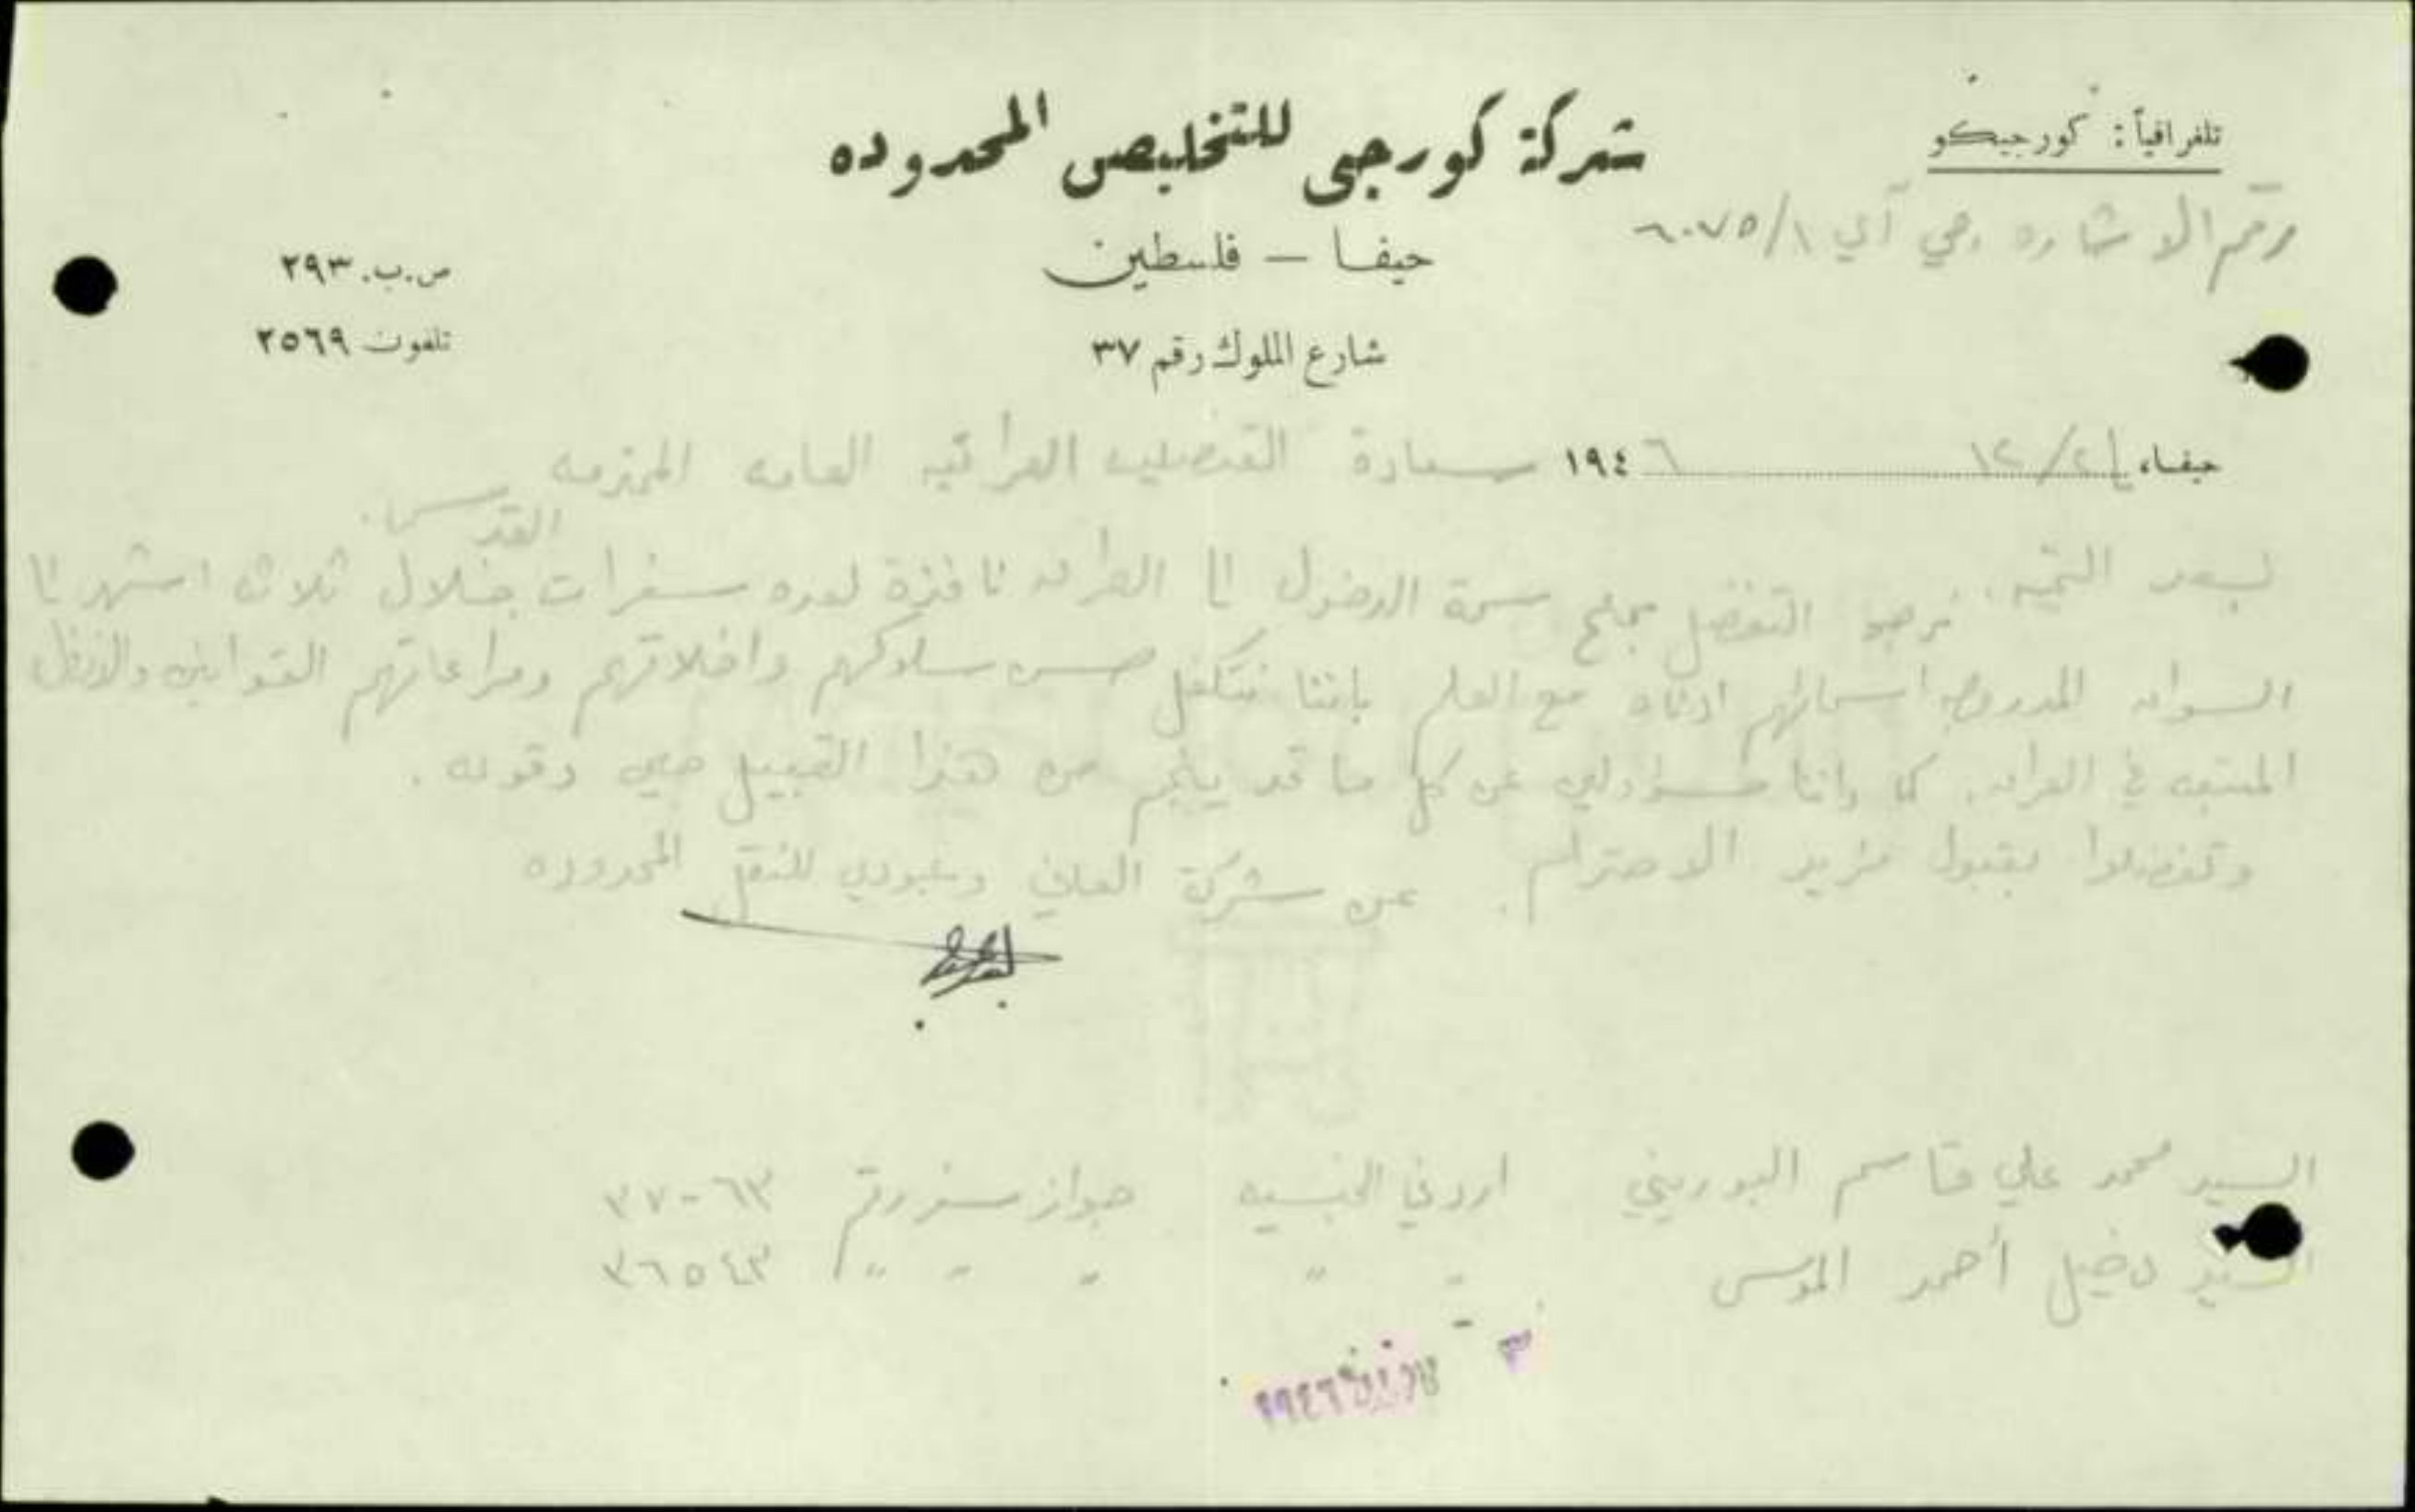 تلغرافياً: كورجيكو
شركة كورجى للتخليص المحدوده
رقم الاشاره جي آي ٦٠٧٥/١
حيفا — فلسطين
ص.ب. ٢٩٣
شارع الملوك رقم ٣٧
تلفون ٢٥٦٩
حيفاء ١٢/٢١ ١٩٤٦ سعادة القنصليه العراقيه العامه المحترمه
القدس.
بعد التحيه. نرجو التفضل بمنح سمة الدخول الى العراق نافذة لعده سفرات خلال ثلاث اشهر الى
السواق المدرجه اسمائهم ادناه مع العلم باننا نتكفل حسن سلوكهم واخلاقهم ومراعاتهم القوانين والانظمه
المتبعه في العراق. كما واننا مسؤولين عن كل ما قد ينجم من هذا القبيل حين وقوعه.
وتفضلوا بقبول مزيد الاحترام. عن شركة العاني وعبودي للنقل المحدوده
السيد محمد علي قاسم البوريني اردني الجنسيه جواز سفر رقم ٣٧٠٦٣
السيد دخيل أحمد الموسى " " " " " ٣٦٥٤٣